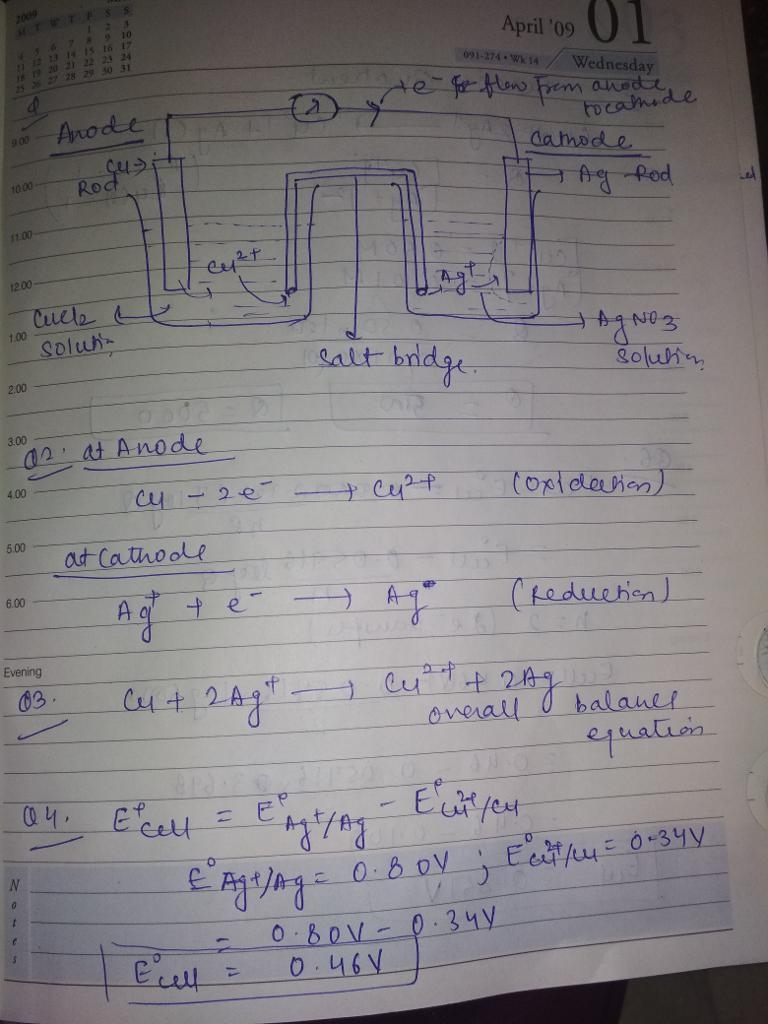 2009
M T W T F S S
1 2 3
4 5 6 7 8 9 10
11 12 13 14 15 16 17
18 19 20 21 22 23 24
25 26 27 28 29 30 31
April '09 01
091-274 • Wk 14 Wednesday
e⁻ flow from anode
to cathode
Anode
λ
Cathode
9.00
Cu
Rod
Ag Rod
10.00
11.00
Cu²⁺
Ag⁺
12.00
CuCl2
solution
AgNO3
solution
1.00
salt bridge.
2.00
3.00
Q2. at Anode
4.00 Cu - 2e⁻ → Cu²⁺ (oxidation)
5.00
at Cathode
6.00 Ag⁺ + e⁻ → Ag (Reduction)
Evening
Q3. Cu + 2Ag⁺ → Cu²⁺ + 2Ag
overall balance
equation
Q4. E°cell = E°Ag⁺/Ag - E°Cu²⁺/Cu
E°Ag⁺/Ag = 0.80V ; E°Cu²⁺/Cu = 0.34V
= 0.80V - 0.34V
E°cell = 0.46V
Notes